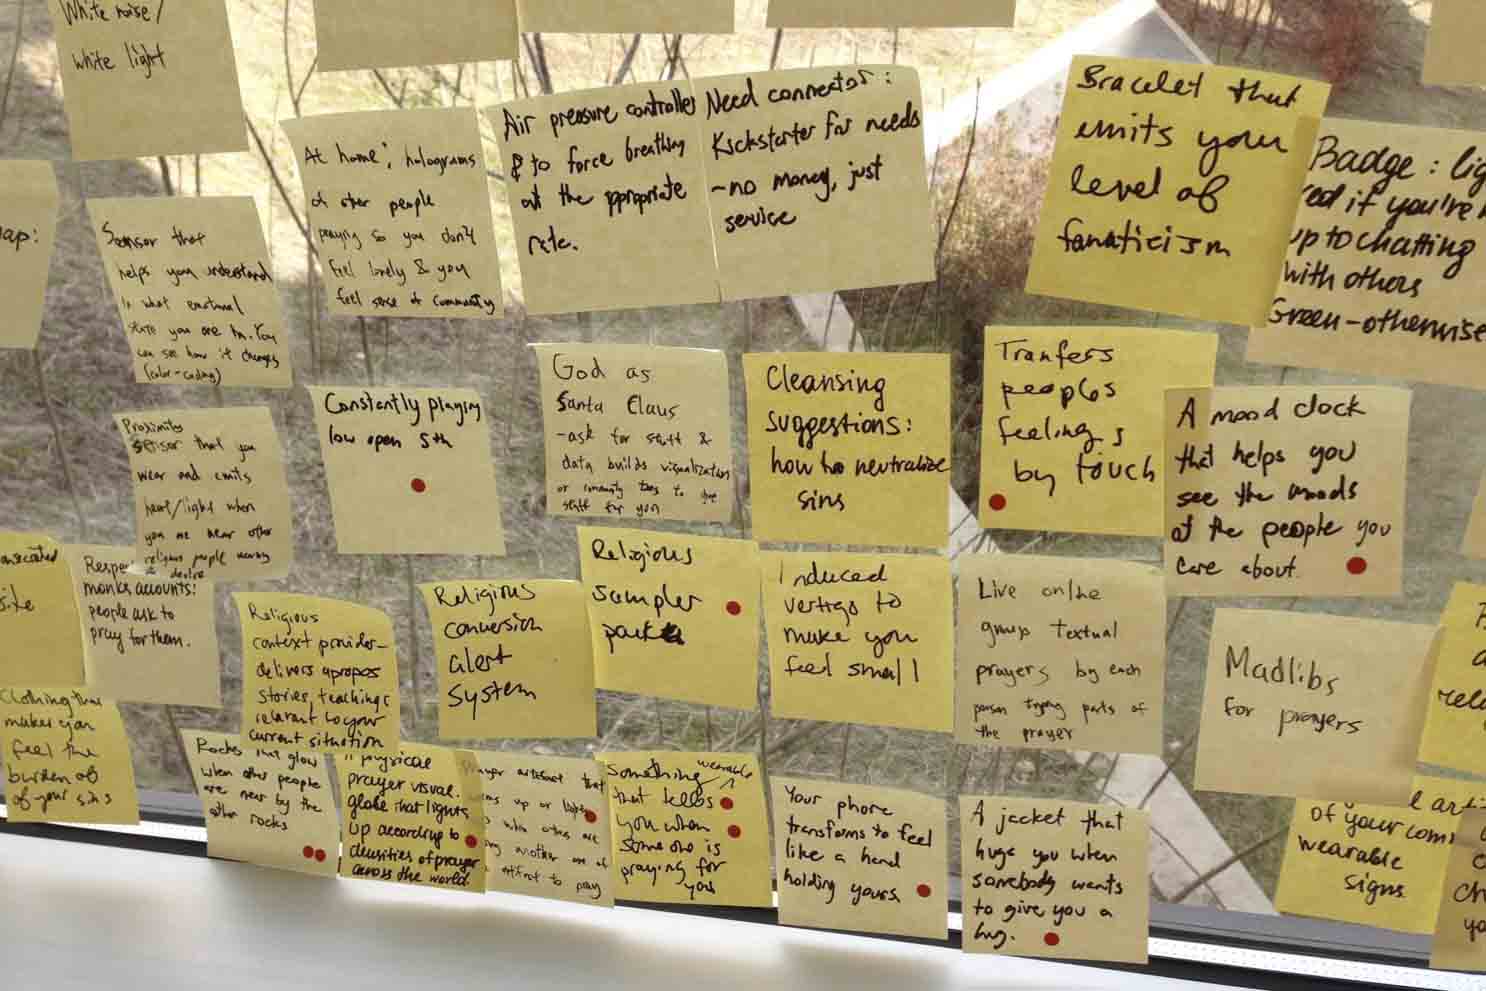 White noise/
white light
At home: holograms
of other people
praying so you don't
feel lonely & you
feel sense of community
Air pressure controller
& to force breathing
at the appropriate
rate.
Need connector:
Kickstarter for needs
-no money, just
service
Bracelet that
emits your
level of
fanaticism
Badge: lig
red if you're n
up to chatting
with others
Green-otherwise
ap:
Sensor that
helps you understand
in what emotional
state you are in. You
can see how it changes
(color-coding)
Constantly playing
low open 5th
God as
Santa Claus
-ask for stuff &
data builds visualization
or community tries to give
stuff for you
Cleansing
suggestions:
how to neutralize
sins
Tranfers
peoples
feelings
by touch
A mood clock
that helps you
see the moods
of the people you
care about.
Proximity
sensor that you
wear and emits
heat/light when
you are near other
religious people
desire
onsecrated
site
Respe
monks accounts:
people ask to
pray for them.
Religious
context provider-
delivers apropos
stories, teachings
relevant to your
current situation
Religious
conversion
alert
system
Religious
sampler
pack
Induced
vertigo to
make you
feel small
Live online
group textual
prayers by each
person trying parts of
the prayer
Madlibs
for prayers
rel
Clothing that
makes you
feel the
burden of
of your sins
Rocks that glow
when other people
are near by the
other rocks
physical
prayer visual.
globe that lights
up according to
densities of prayer
across the world.
prayer artifact that
up or lights
when others are
another one of
artifact to pray
Something wearable
that tells
you when
someone is
praying for
you
Your phone
transforms to feel
like a hand
holding yours
A jacket that
hugs you when
somebody wants
to give you a
hug.
l arti
of your com
wearable
signs
ch
yo